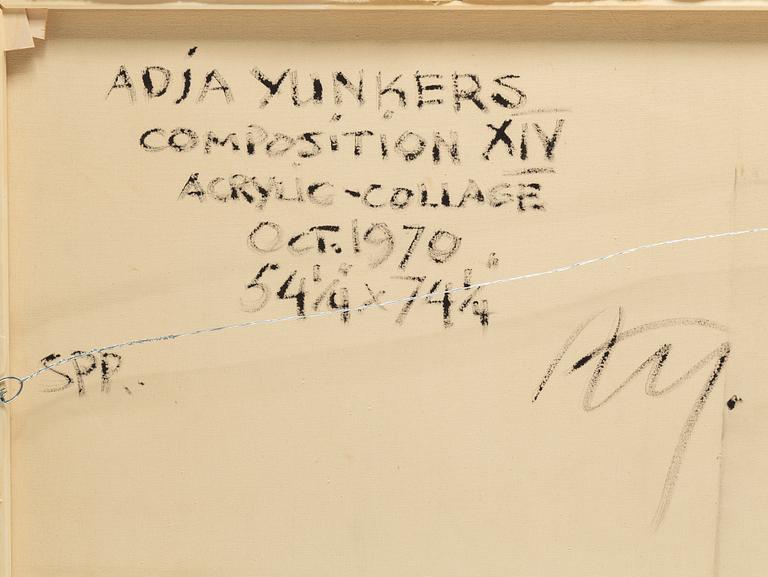 ADJA YUNKERS
COMPOSITION XIV
ACRYLIC-COLLAGE
OCT. 1970
54¼" x 74¼"
SPP.
Ay.